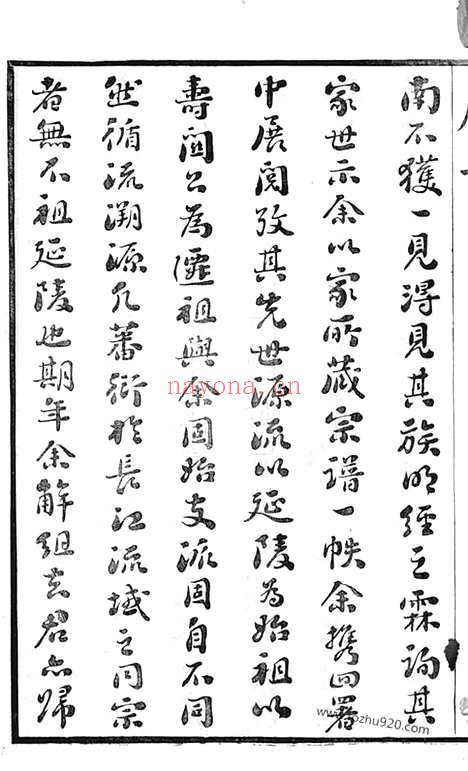 南不獲一見得見其族明經之霖詢其
家世示余以家所藏宗譜一帙余攜回署
中展閱攷其先世源流以延陵為始祖以
壽閶公為遷祖與余固始支派固自不同
然循流溯源凡蕃衍於長江流域之同宗
者無不祖延陵也期年余解組去君亦歸
nayona.cn
www.pozhu920.com